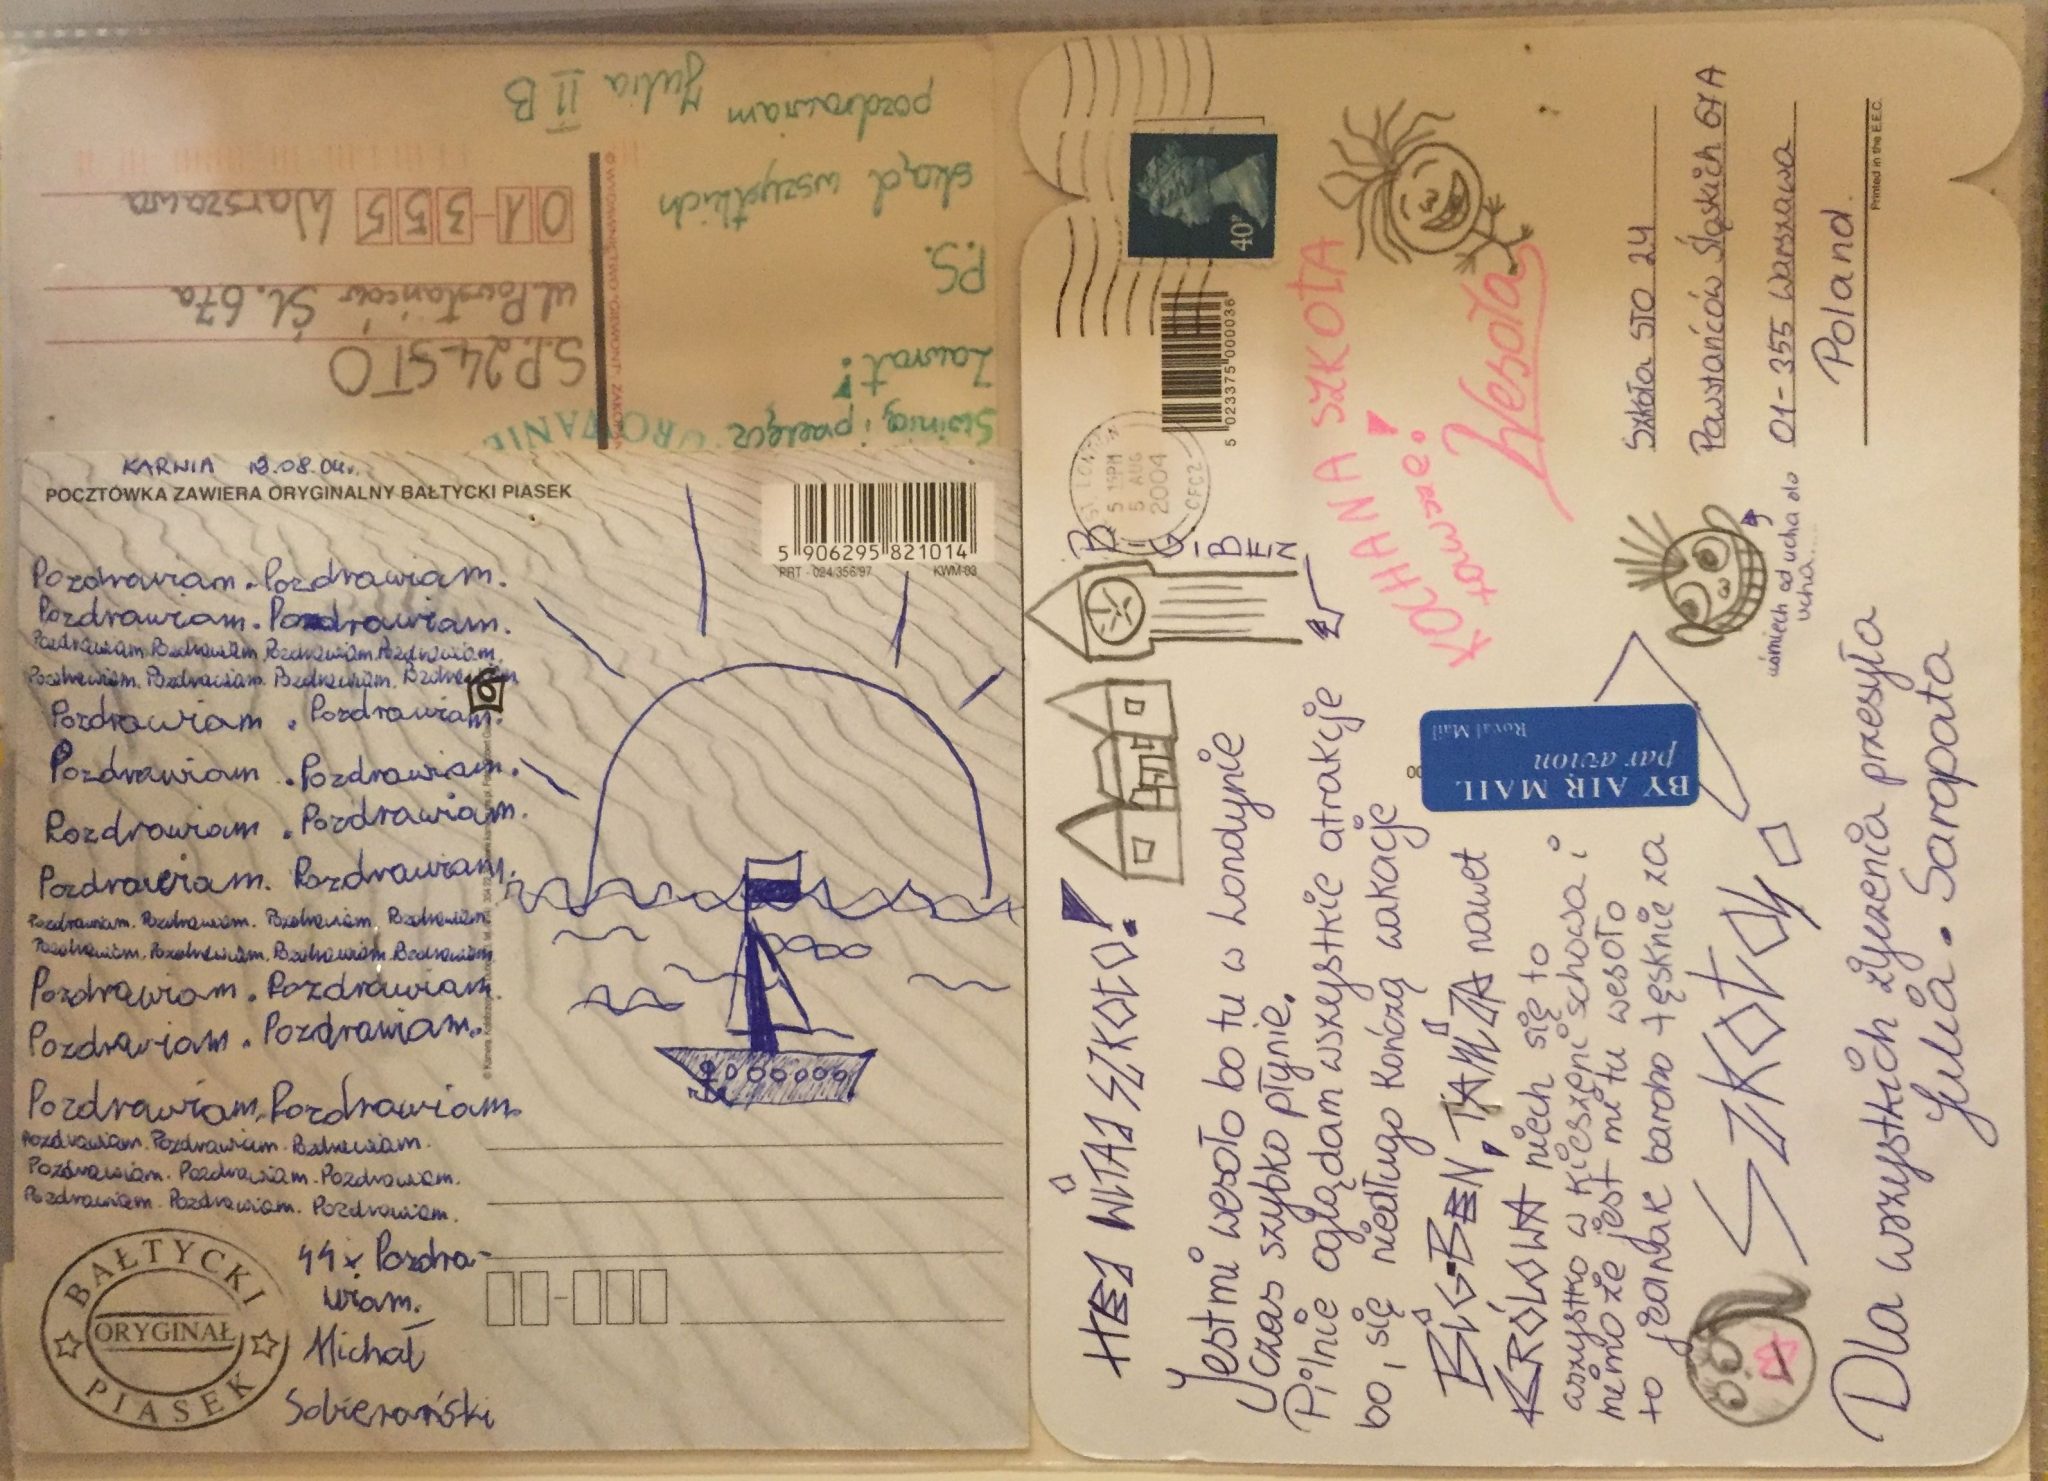 KARWIA 13.08.04r.
POCZTÓWKA ZAWIERA ORYGINALNY BAŁTYCKI PIASEK
5 906295 821014
PRT - 024/356/97 KWM-03
Pozdrawiam. Pozdrawiam.
Pozdrawiam. Pozdrawiam.
Pozdrawiam. Pozdrawiam. Pozdrawiam. Pozdrawiam.
Pozdrawiam. Pozdrawiam. Pozdrawiam. Pozdrawiam
Pozdrawiam. Pozdrawiam.
Pozdrawiam. Pozdrawiam.
Pozdrawiam. Pozdrawiam.
Pozdrawiam. Pozdrawiam.
Pozdrawiam. Pozdrawiam. Pozdrawiam. Pozdrawiam
Pozdrawiam. Pozdrawiam. Pozdrawiam. Pozdrawiam
Pozdrawiam. Pozdrawiam.
Pozdrawiam. Pozdrawiam.
Pozdrawiam. Pozdrawiam.
Pozdrawiam. Pozdrawiam. Pozdrawiam.
Pozdrawiam. Pozdrawiam. Pozdrawiam.
Pozdrawiam. Pozdrawiam. Pozdrawiam.
44 x Pozdra-
wiam.
Michał
Sobierański
BAŁTYCKI
ORYGINAŁ
PIASEK
Świnią i przełęcz
Zawrat!
P.S.
skąd wszystkich
pozdrawiam Julia II B
S.P. 24 STO
ul. Powstańców Śl. 67a
01-355 Warszawa
HEJ WITAJ SZKOŁO!
Jest mi wesoło bo tu w Londynie
czas szybko płynie.
Pilnie oglądam wszystkie atrakcje
bo, się niedługo kończą wakacje
BIG-BEN, TAMIZA nawet
KRÓLOWA niech się to
wszystko w kieszeni schowa i
mimo że jest mi tu wesoło
to jednak bardzo tęsknię za
SZKOŁĄ.
Dla wszystkich życzenia przesyła
Julia. Sarapata
BIG-BEN
KOCHANA SZKOŁA
zawsze!
Wesoła
uśmiech od ucha do
ucha....
BY AIR MAIL
par avion
Royal Mail
5 023375 000036
5 15PM
5 AUG
2004
CFC2
40P
Szkoła STO 24
Powstańców Śląskich 67A
01-355 Warszawa
Poland
Printed in the E.E.C.